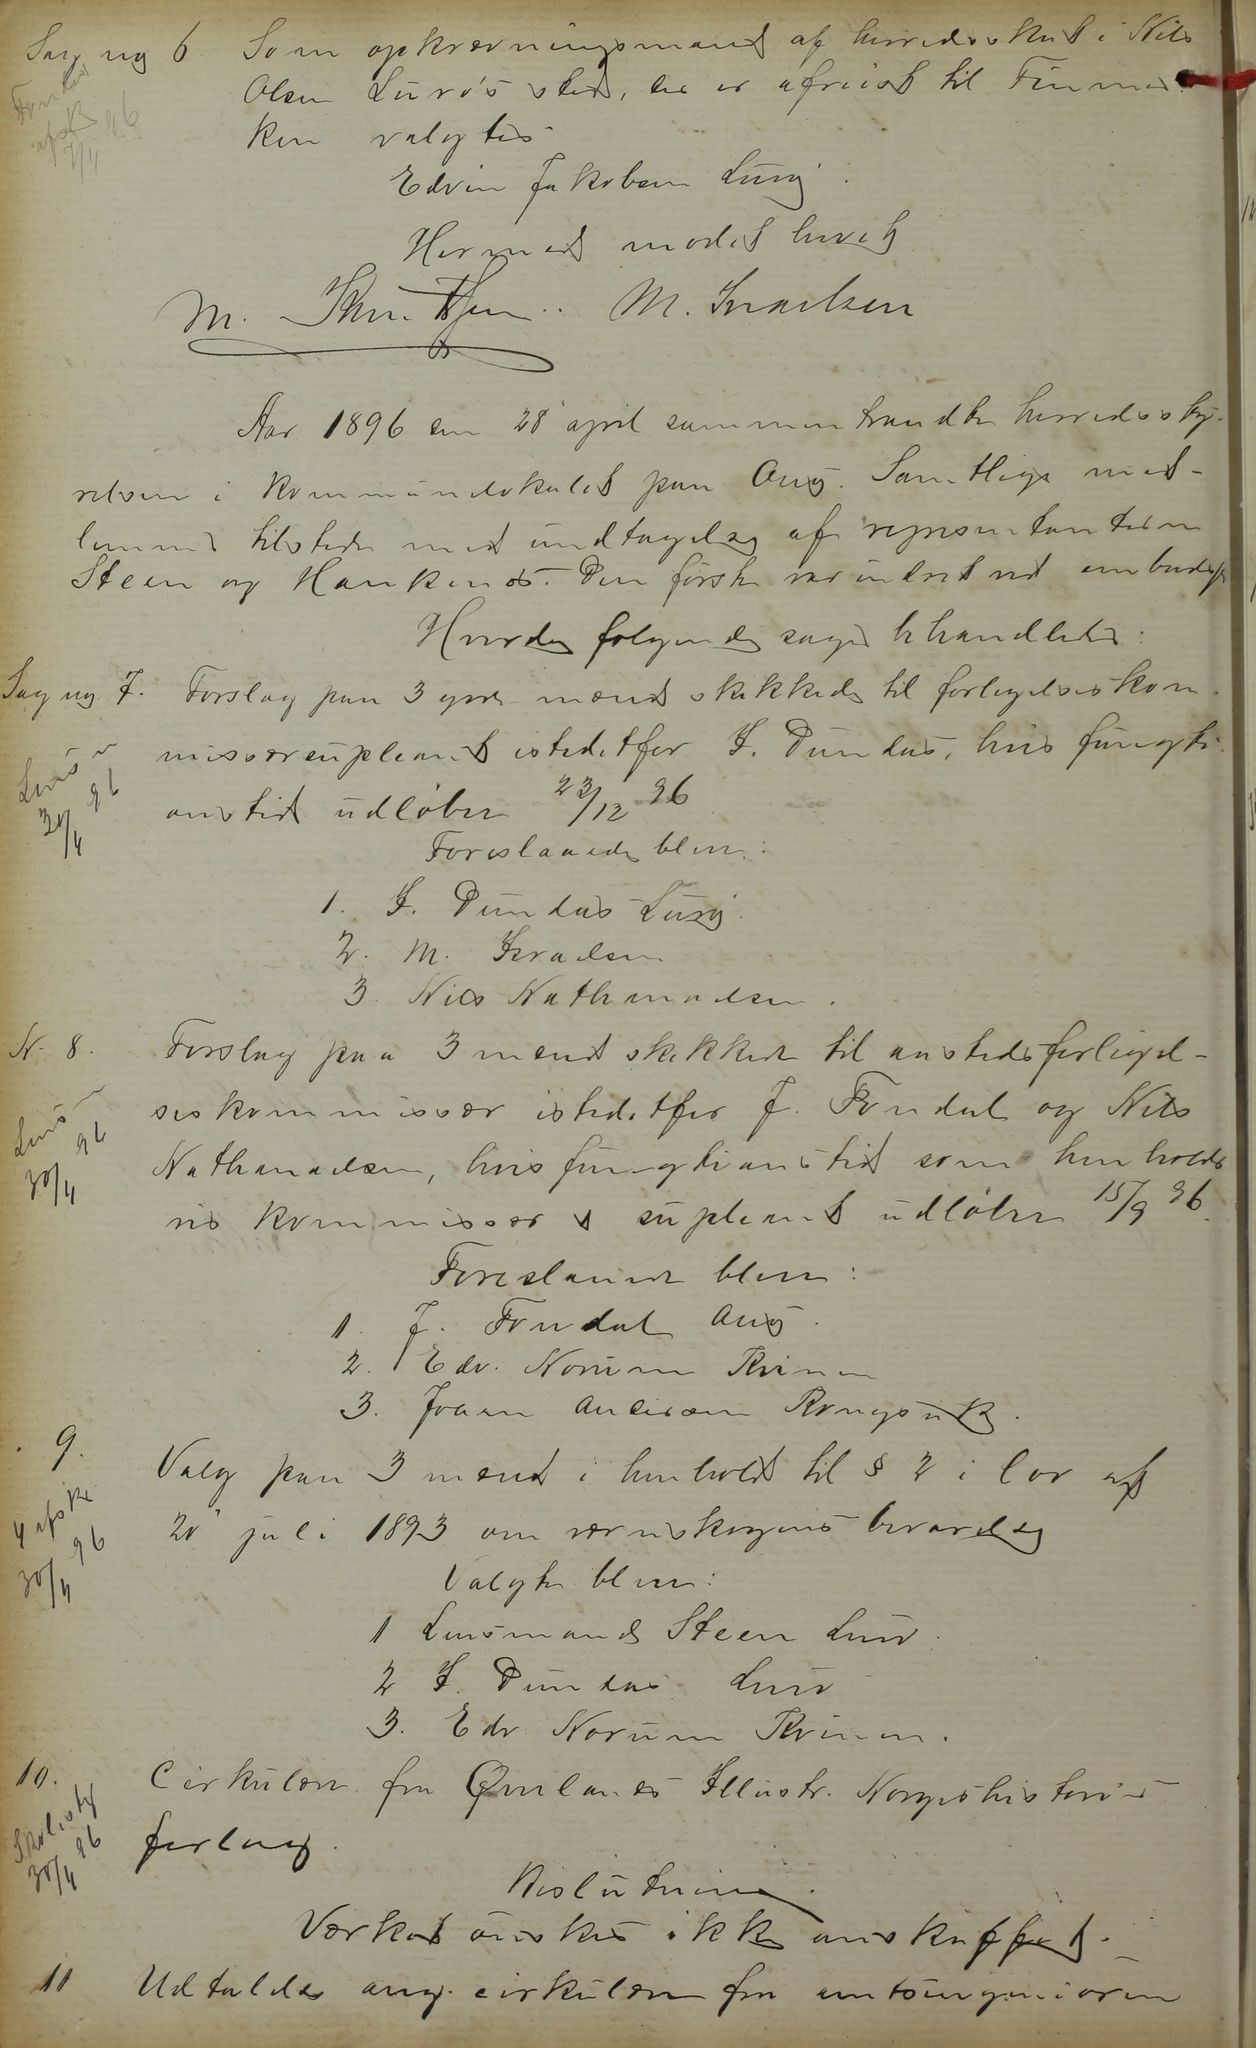 Sag ng 6. Som opkrævningsmand af herredsskat i Nils
Olsen Lurø's sted, der er afreist til Finmar-
ken valgtes
afsk 7/4 96
Edvin Jakobsen Lurø.
Hermed mødet hævet
M. Israelsen
Aar 1896 den 28 april sammentraadte herredssty-
relsen i kommunelokalet paa Onø. Samtlige med-
lemmer tilstede med undtagelse af repræsentanterne
Steen og Haukenæs. Den første var indvet ved embedsf
Hvorda følgende sager behandledes:
Sag ng 7. Forslag paa 3 gode mænd skikkede til forligelseskom-
missærsupleant istedetfor I. Dundas, hvis fungti-
onstid udløber 23/12 96
30/4 96
Foreslaaede blev:
1. I. Dundas Lurø.
2. M. Israelsen
3 Nils Nathanaelsen.
N. 8. Forslag paa 3 mænd skikkede til anstedsforligel-
seskommissær istedetfor J. Fondal og Nils
Nathanaelsen, hvis fungtionstid som henholds
vis kommissær & supleant udløber 15/9 96.
30/4 96
Foreslaaede blev:
1. J. Fondal Onø.
2. Edv. Norum Kvinen
3. Johan Andersen
9. Valg paa 3 mænd i henhold til § 2 i lov af
20 juli 1893 om værnskogens bevarelse
4 afskr. 30/4 96
Valgte blev:
1 Lensmand Steen Lurø.
2 I. Dundas Lurø
3. Edv. Norum Kvinen.
10. Cirkulære fra Illustr. Norgeshistories
forlag.
30/4 96
Beslutning.
Værket ønskes ikke anskaffet.
11 Udtaltes ang. cirkulære fra amtsingeniøren